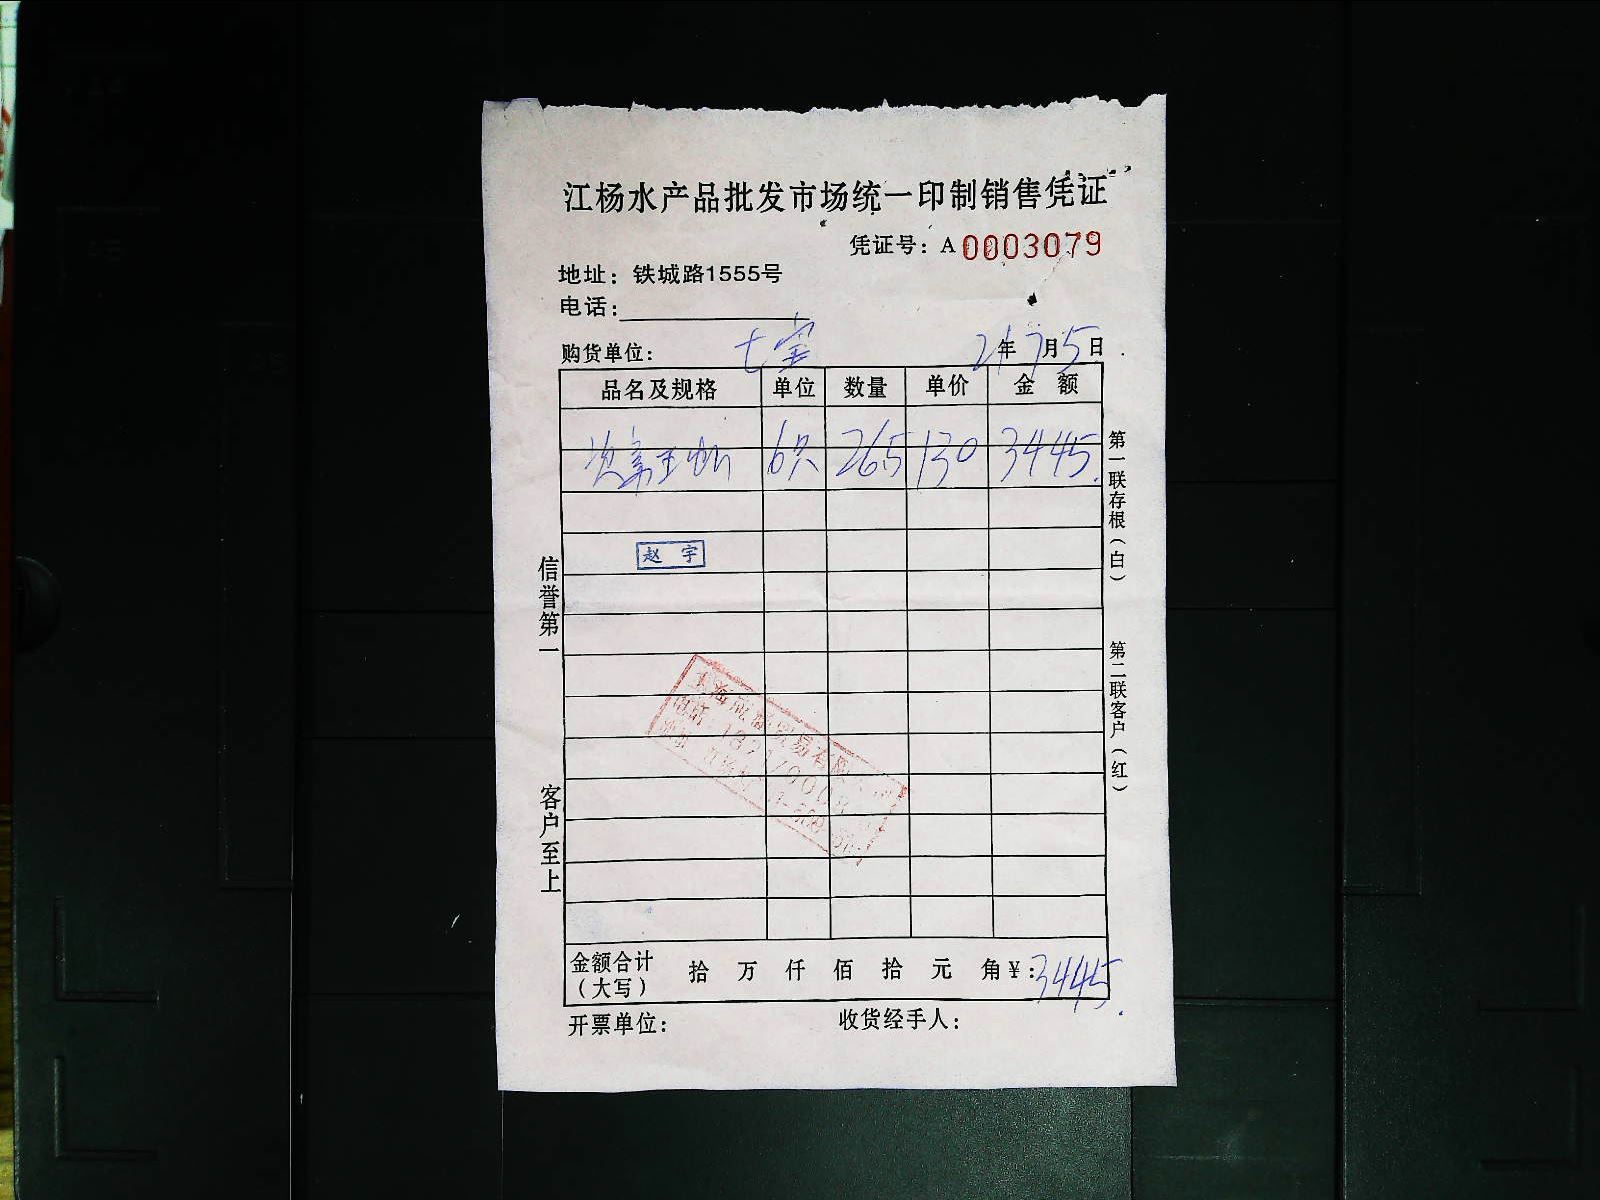 江杨水产品批发市场统一印制销售凭证
凭证号：A 0003079
地址：铁城路1555号
电话：
购货单位： 七宝 21年7月5日
品名及规格 单位 数量 单价 金额
6只 265 130 3445.
赵宇
信誉第一
客户至上
第一联存根（白）
第二联客户（红）
贸易有限
电话
金额合计（大写） 拾 万 仟 佰 拾 元 角 ¥：3445.
开票单位： 收货经手人：